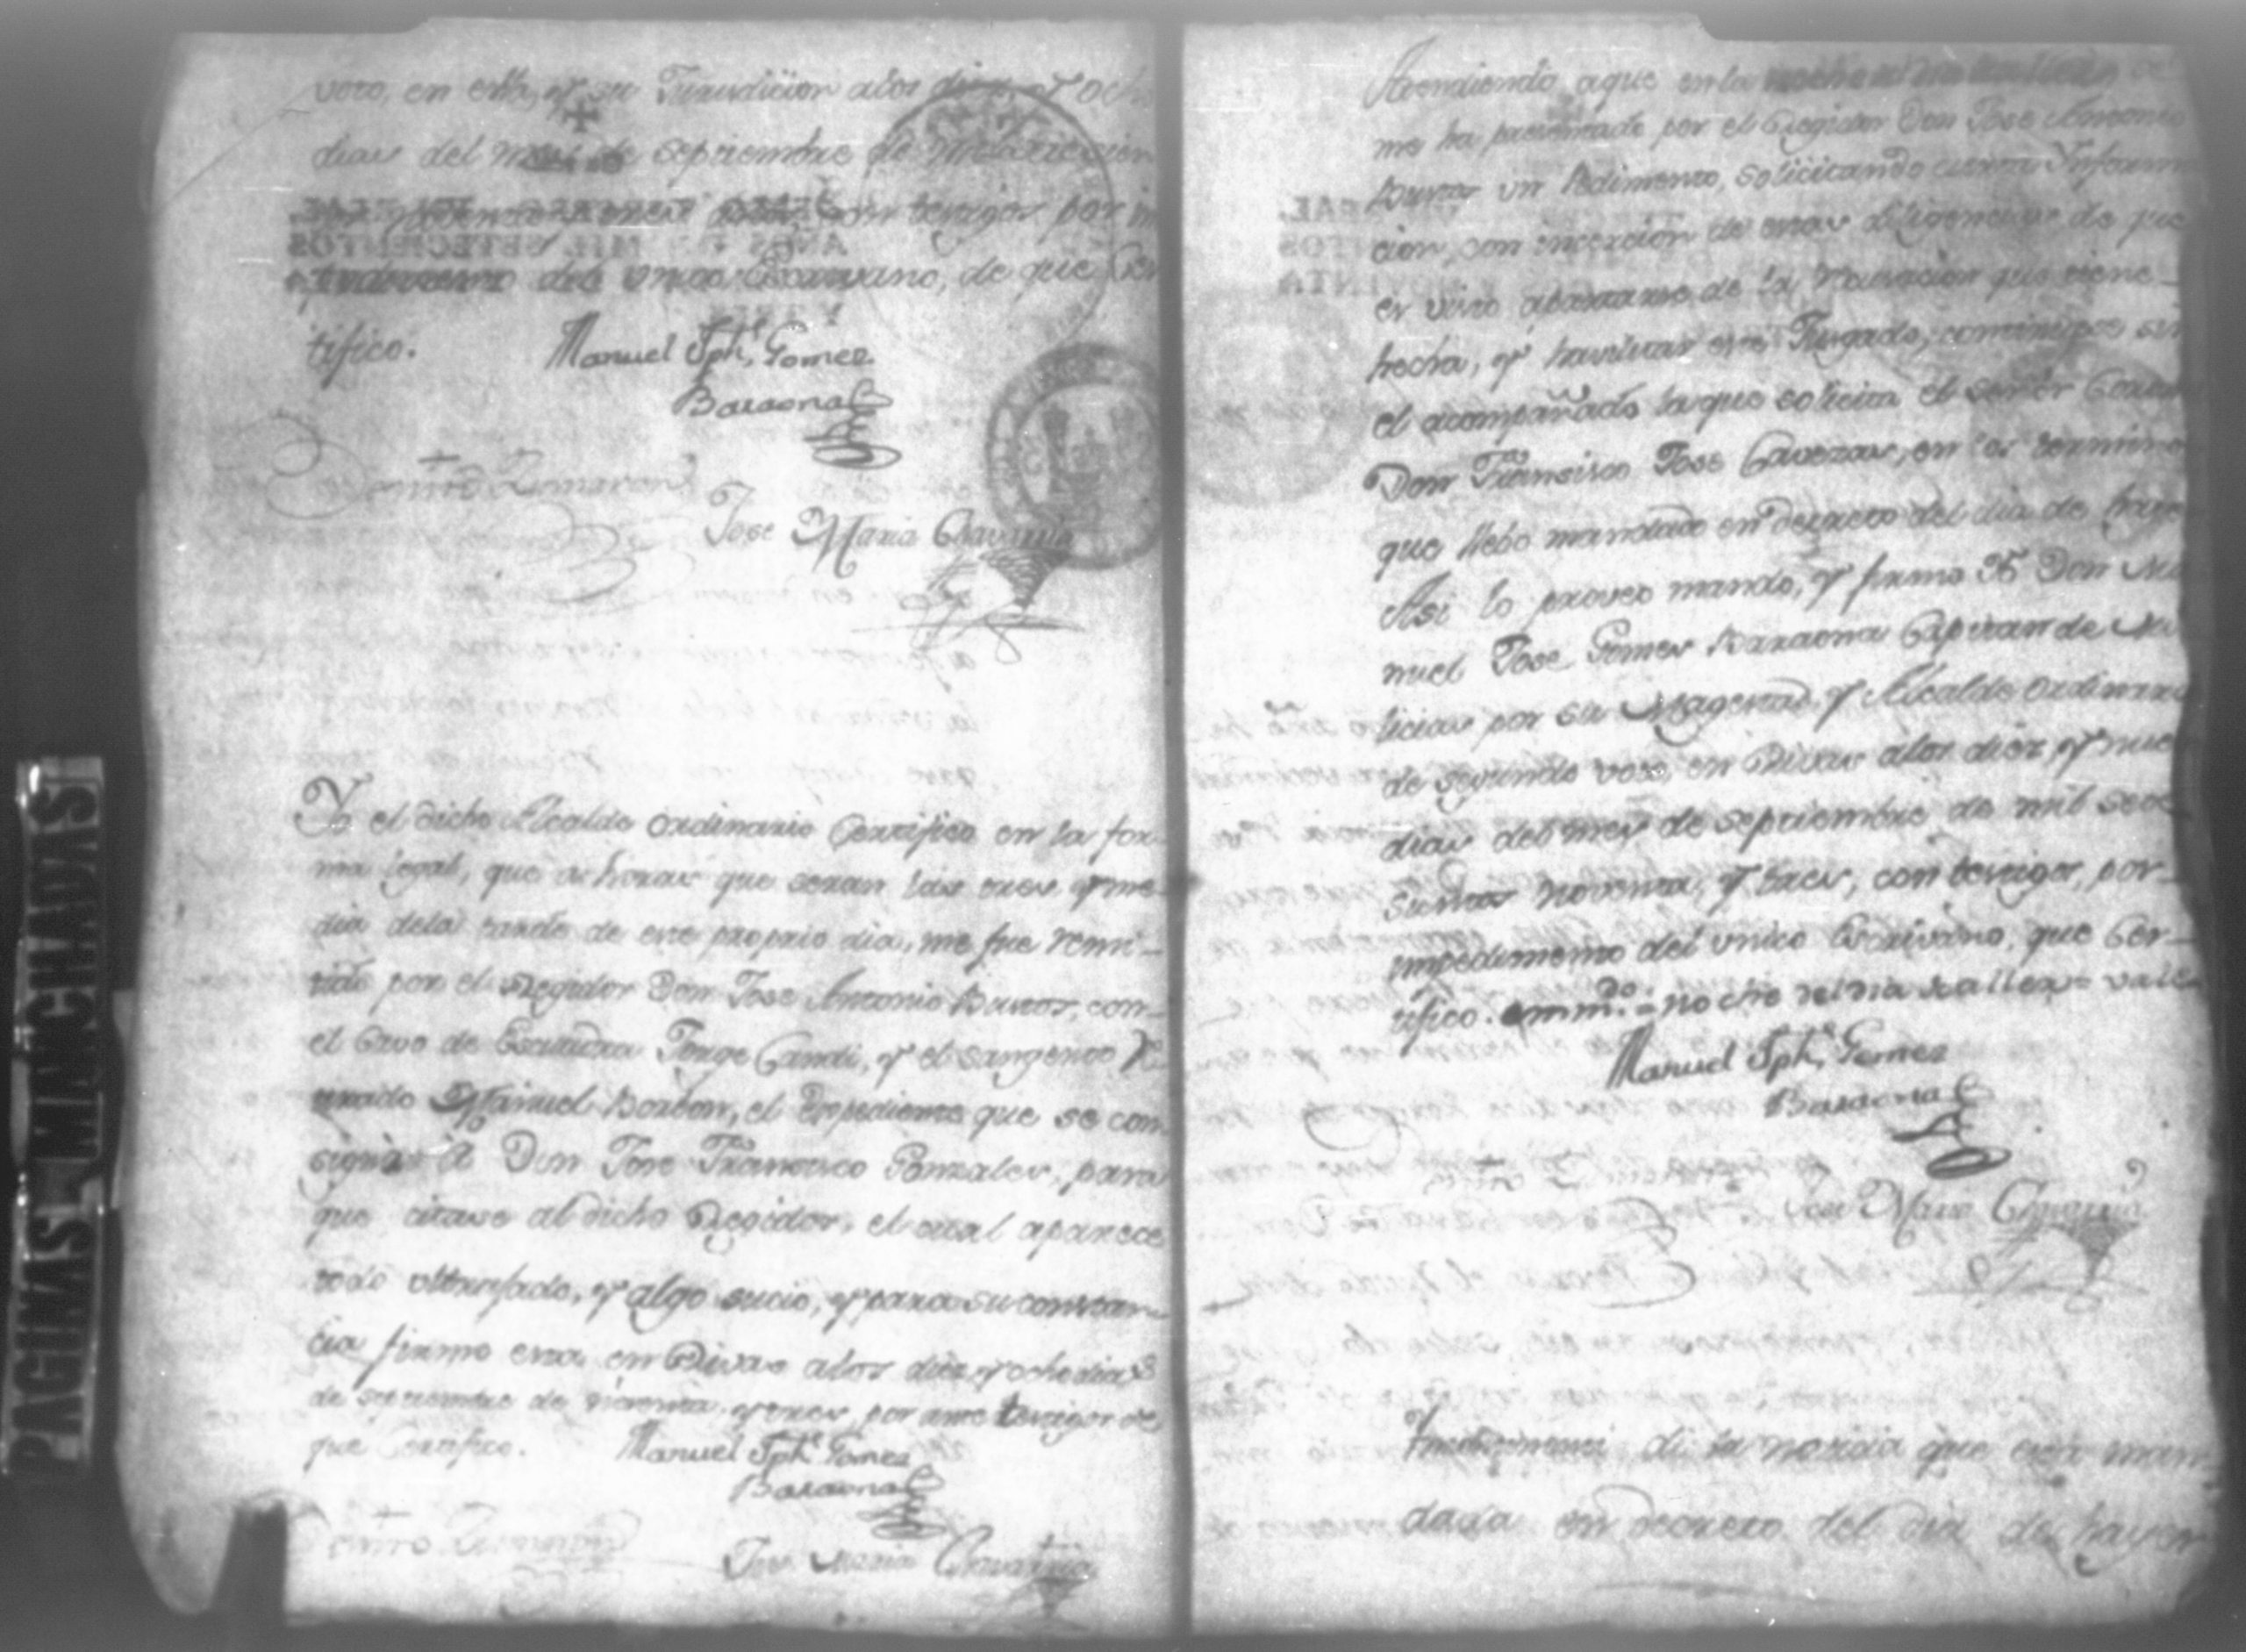 voto, en esta, y su Jurisdiccion alos diez, y ocho
dias del mes de Septiembre de mil setecien
tos noventa y tres años, con testigos por im
pedimento del vnico Escrivano, de que Cer
tifico.
Manuel Jph. Gomez
Baraona
Jose Maria Chavarria
Yo el dicho Alcalde ordinario Certifico en la for-
ma legal, que a horas que seran las tres y me-
dia dela tarde de este proprio dia, me fue remi-
tido por el Regidor Don Jose Antonio Bustos, con
el Cavo de Esquadra Jorge Candi, y el Sargento
Manuel Borbon, el Expediente que se con
signó á Don Jose Francisco Gonzales, para
que citase al dicho Regidor, el cual aparece
todo ultraxado, y algo sucio, y para su constan
cia firmo esta en Rivas alos diez y ocho dias
de septiembre de noventa, y tres, por ante testigos de
que Certifico.
Manuel Jph. Gomez
Baraona
Jose Maria Chavarria
Atendiendo aque en la noche del dia
me ha presentado por el Regidor Don Jose Antonio
Bustos vn Pedimento, solicitando cierta Informa
cion, con incercion de estas diligencias de que
es visto apartarse de la recusacion que tiene
hecha, y havilitar este Jusgado, continuese sin
el acompañado la que solicita el señor
Don Francisco Jose Cavezas, en los terminos
que llebo mandado en decreto del dia de
Asi lo proveo mando, y firmo Yo Don Ma
nuel Jose Gomes Baraona Capitan de Mi
licias por su Magestad, y Alcalde ordinario
de segundo voto, en Rivas alos diez, y nueve
dias del mes de septiembre de mil sete
sientos noventa, y tres, con testigos, por
impedimento del vnico Escrivano, que Cer-
tifico. emm.do = noche del dia = vale
Manuel Jph. Gomez
Baraona
Jose Maria Chavarria
di la noticia que está man
dada en decreto del dia de
PAGINAS MANCHADAS